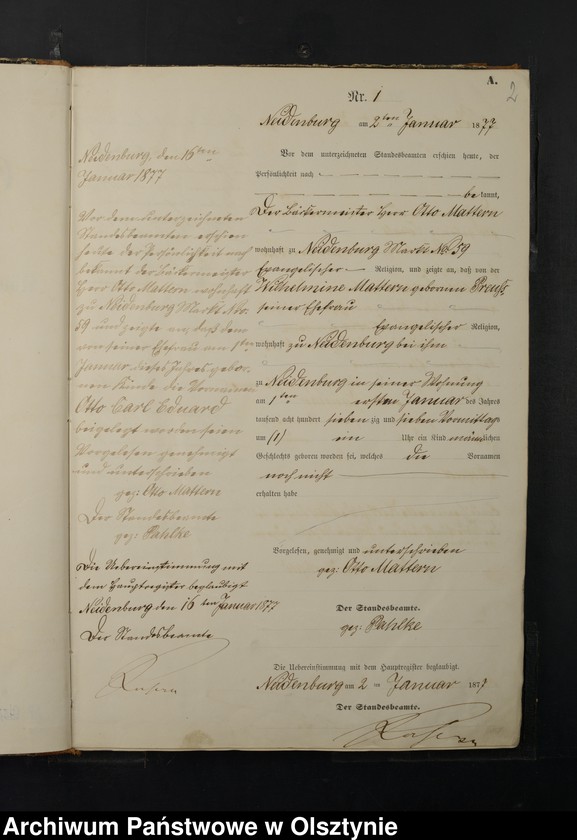 A.
2
Nr. 1
Neidenburg am 2ten Januar 1877
Vor dem unterzeichneten Standesbeamten erschien heute, der
Persönlichkeit nach
be kannt,
Der Bäckermeister Herr Otto Mattern
wohnhaft zu Neidenburg Markt No 59
Evangelischer Religion, und zeigte an, daß von der
Wilhelmine Mattern geborenen Preuß
seiner Ehefrau
Evangelischer Religion,
wohnhaft zu Neidenburg bei ihm
zu Neidenburg in seiner Wohnung
am 1ten ersten Januar des Jahres
tausend acht hundert sieben zig und sieben Vormittag
um (1) ein Uhr ein Kind männlichen
Geschlechts geboren worden sei, welches die Vornamen
noch nicht
erhalten habe
Vorgelesen, genehmigt und unterschrieben
gez: Otto Mattern
Der Standesbeamte.
gez: Pahlke
Die Uebereinstimmung mit dem Hauptregister beglaubigt.
Neidenburg am 2 Januar 1877
Der Standesbeamte.
Neidenburg, den 16ten
Januar 1877
Vor dem unterzeichneten
Standesbeamten erschien
heute der Persönlichkeit nach
bekannt der Bäckermeister
Herr Otto Mattern wohnhaft
zu Neidenburg Markt Nr.
59 und zeigte an, daß dem
von seiner Ehefrau am 1ten
Januar dieses Jahres gebor-
nen Kinde die Vornamen
Otto Carl Eduard
beigelegt worden seien
Vorgelesen genehmigt
und unterschrieben
gez: Otto Mattern
Der Standesbeamte
gez: Pahlke
Die Uebereinstimmung mit
dem Hauptregister beglaubigt
Neidenburg den 16ten Januar 1877
Der Standesbeamte
Archiwum Państwowe w Olsztynie